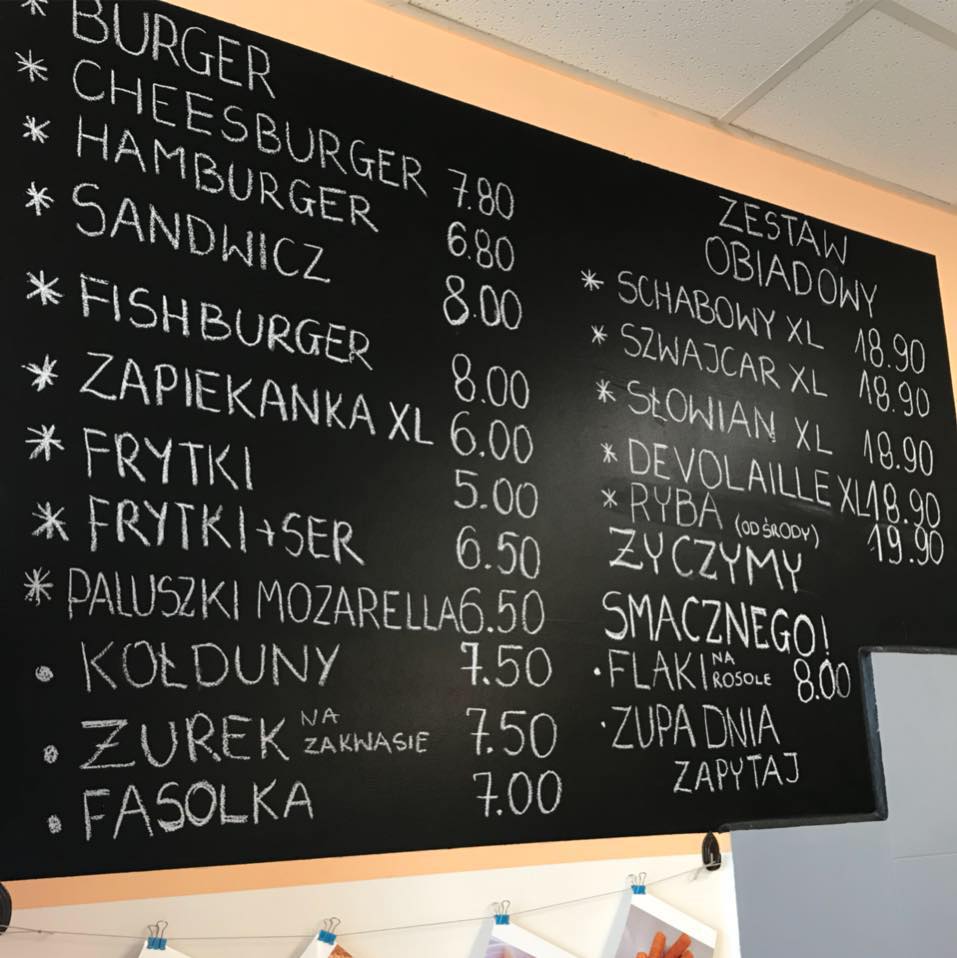 * BURGER
* CHEESBURGER 7.80
* HAMBURGER 6.80
* SANDWICZ 8.00
* FISHBURGER 8.00
* ZAPIEKANKA XL 6.00
* FRYTKI 5.00
* FRYTKI+SER 6.50
* PALUSZKI MOZARELLA 6.50
• KOŁDUNY 7.50
• ŻUREK NA ZAKWASIE 7.50
• FASOLKA 7.00
ZESTAW
OBIADOWY
* SCHABOWY XL 18.90
* SZWAJCAR XL 18.90
* SŁOWIAN XL 18.90
* DEVOLAILLE XL 18.90
* RYBA (OD ŚRODY) 19.90
ŻYCZYMY
SMACZNEGO!
• FLAKI NA ROSOLE 8.00
• ZUPA DNIA
ZAPYTAJ